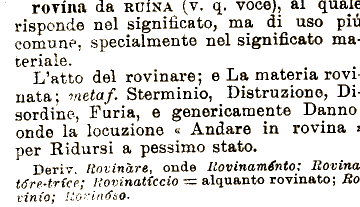 rovína da RUÍNA (v. q. voce), al quale
risponde nel significato, ma di uso piú
comune, specialmente nel significato ma-
teriale.
L'atto del rovinare; e La materia rovi-
nata; metaf. Sterminio, Distruzione, Di-
sordine, Furia, e genericamente Danno
onde la locuzione « Andare in rovina »
per Ridursi a pessimo stato.
Deriv. Rovinàre, onde Rovinaménto; Rovina-
tóre-tríce; Rovinatíccio = alquanto rovinato; Ro-
vinío; Rovinóso.